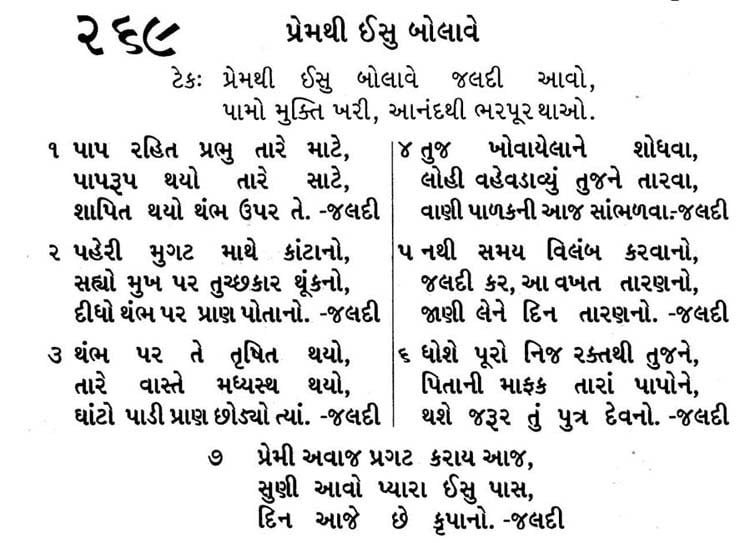 ૨૬૯
પ્રેમથી ઈસુ બોલાવે
ટેકઃ પ્રેમથી ઈસુ બોલાવે જલદી આવો,
પામો મુક્તિ ખરી, આનંદથી ભરપૂર થાઓ.
૧ પાપ રહિત પ્રભુ તારે માટે,
પાપરૂપ થયો તારે સાટે,
શાપિત થયો થંભ ઉપર તે. -જલદી
૨ પહેરી મુગટ માથે કાંટાનો,
સહ્યો મુખ પર તુચ્છકાર થૂંકનો,
દીધો થંભ પર પ્રાણ પોતાનો. -જલદી
૩ થંભ પર તે તૃષિત થયો,
તારે વાસ્તે મધ્યસ્થ થયો,
ઘાંટો પાડી પ્રાણ છોડ્યો ત્યાં. -જલદી
૪ તુજ ખોવાયેલાને શોધવા,
લોહી વહેવડાવ્યું તુજને તારવા,
વાણી પાળકની આજ સાંભળવા.-જલદી
૫ નથી સમય વિલંબ કરવાનો,
જલદી કર, આ વખત તારણનો,
જાણી લેને દિન તારણનો. -જલદી
૬ ધોશે પૂરો નિજ રક્તથી તુજને,
પિતાની માફક તારાં પાપોને,
થશે જરૂર તું પુત્ર દેવનો. -જલદી
૭ પ્રેમી અવાજ પ્રગટ કરાય આજ,
સુણી આવો પ્યારા ઈસુ પાસ,
દિન આજે છે કૃપાનો. -જલદી